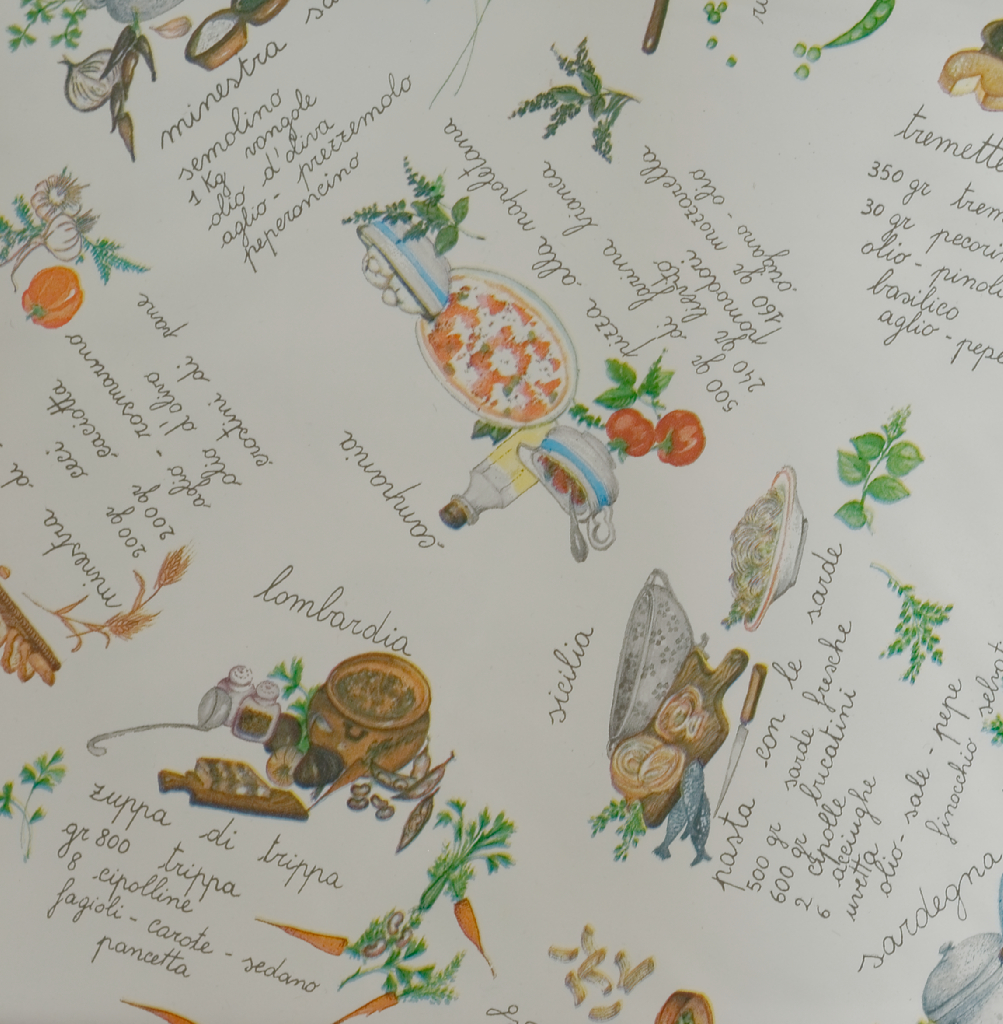 minestra
semolino
1 kg vongole
olio d'oliva
aglio - prezzemolo
peperoncino
tremette
350 gr trem
30 gr pecorin
olio - pinoli
basilico
aglio - pepe
campania
pizza alla napoletana
500 gr di farina bianca
240 gr lievito
pomodori
160 gr mozzarella
origano - olio
minestra di
200 gr ceci
200 gr caciotta
aglio - rosmarino
olio d'olivo
crostini di pane
lombardia
zuppa di trippa
gr 800 trippa
8 cipolline
fagioli - carote - sedano
pancetta
sicilia
pasta con le sarde
500 gr bucatini
600 gr sarde fresche
2 cipolle
6 acciughe
uvetta
olio - sale - pepe
finocchio selvat
sardegna